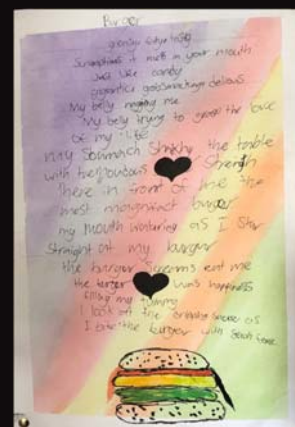 Burger
Sumptious it melt in your mouth
Just like candy
gigantics gobsmacking delious
My belly nagging me
My belly trying to grab the love
of my life
My Stumach the table
with tremoubous Strength
there in front of me the
most magnifact burger
my mouth watering as I star
Straight at my burger
the burger screams eat me
the burger was happiness
filling my tummy
I lick off the sauce as
I bite the burger with such